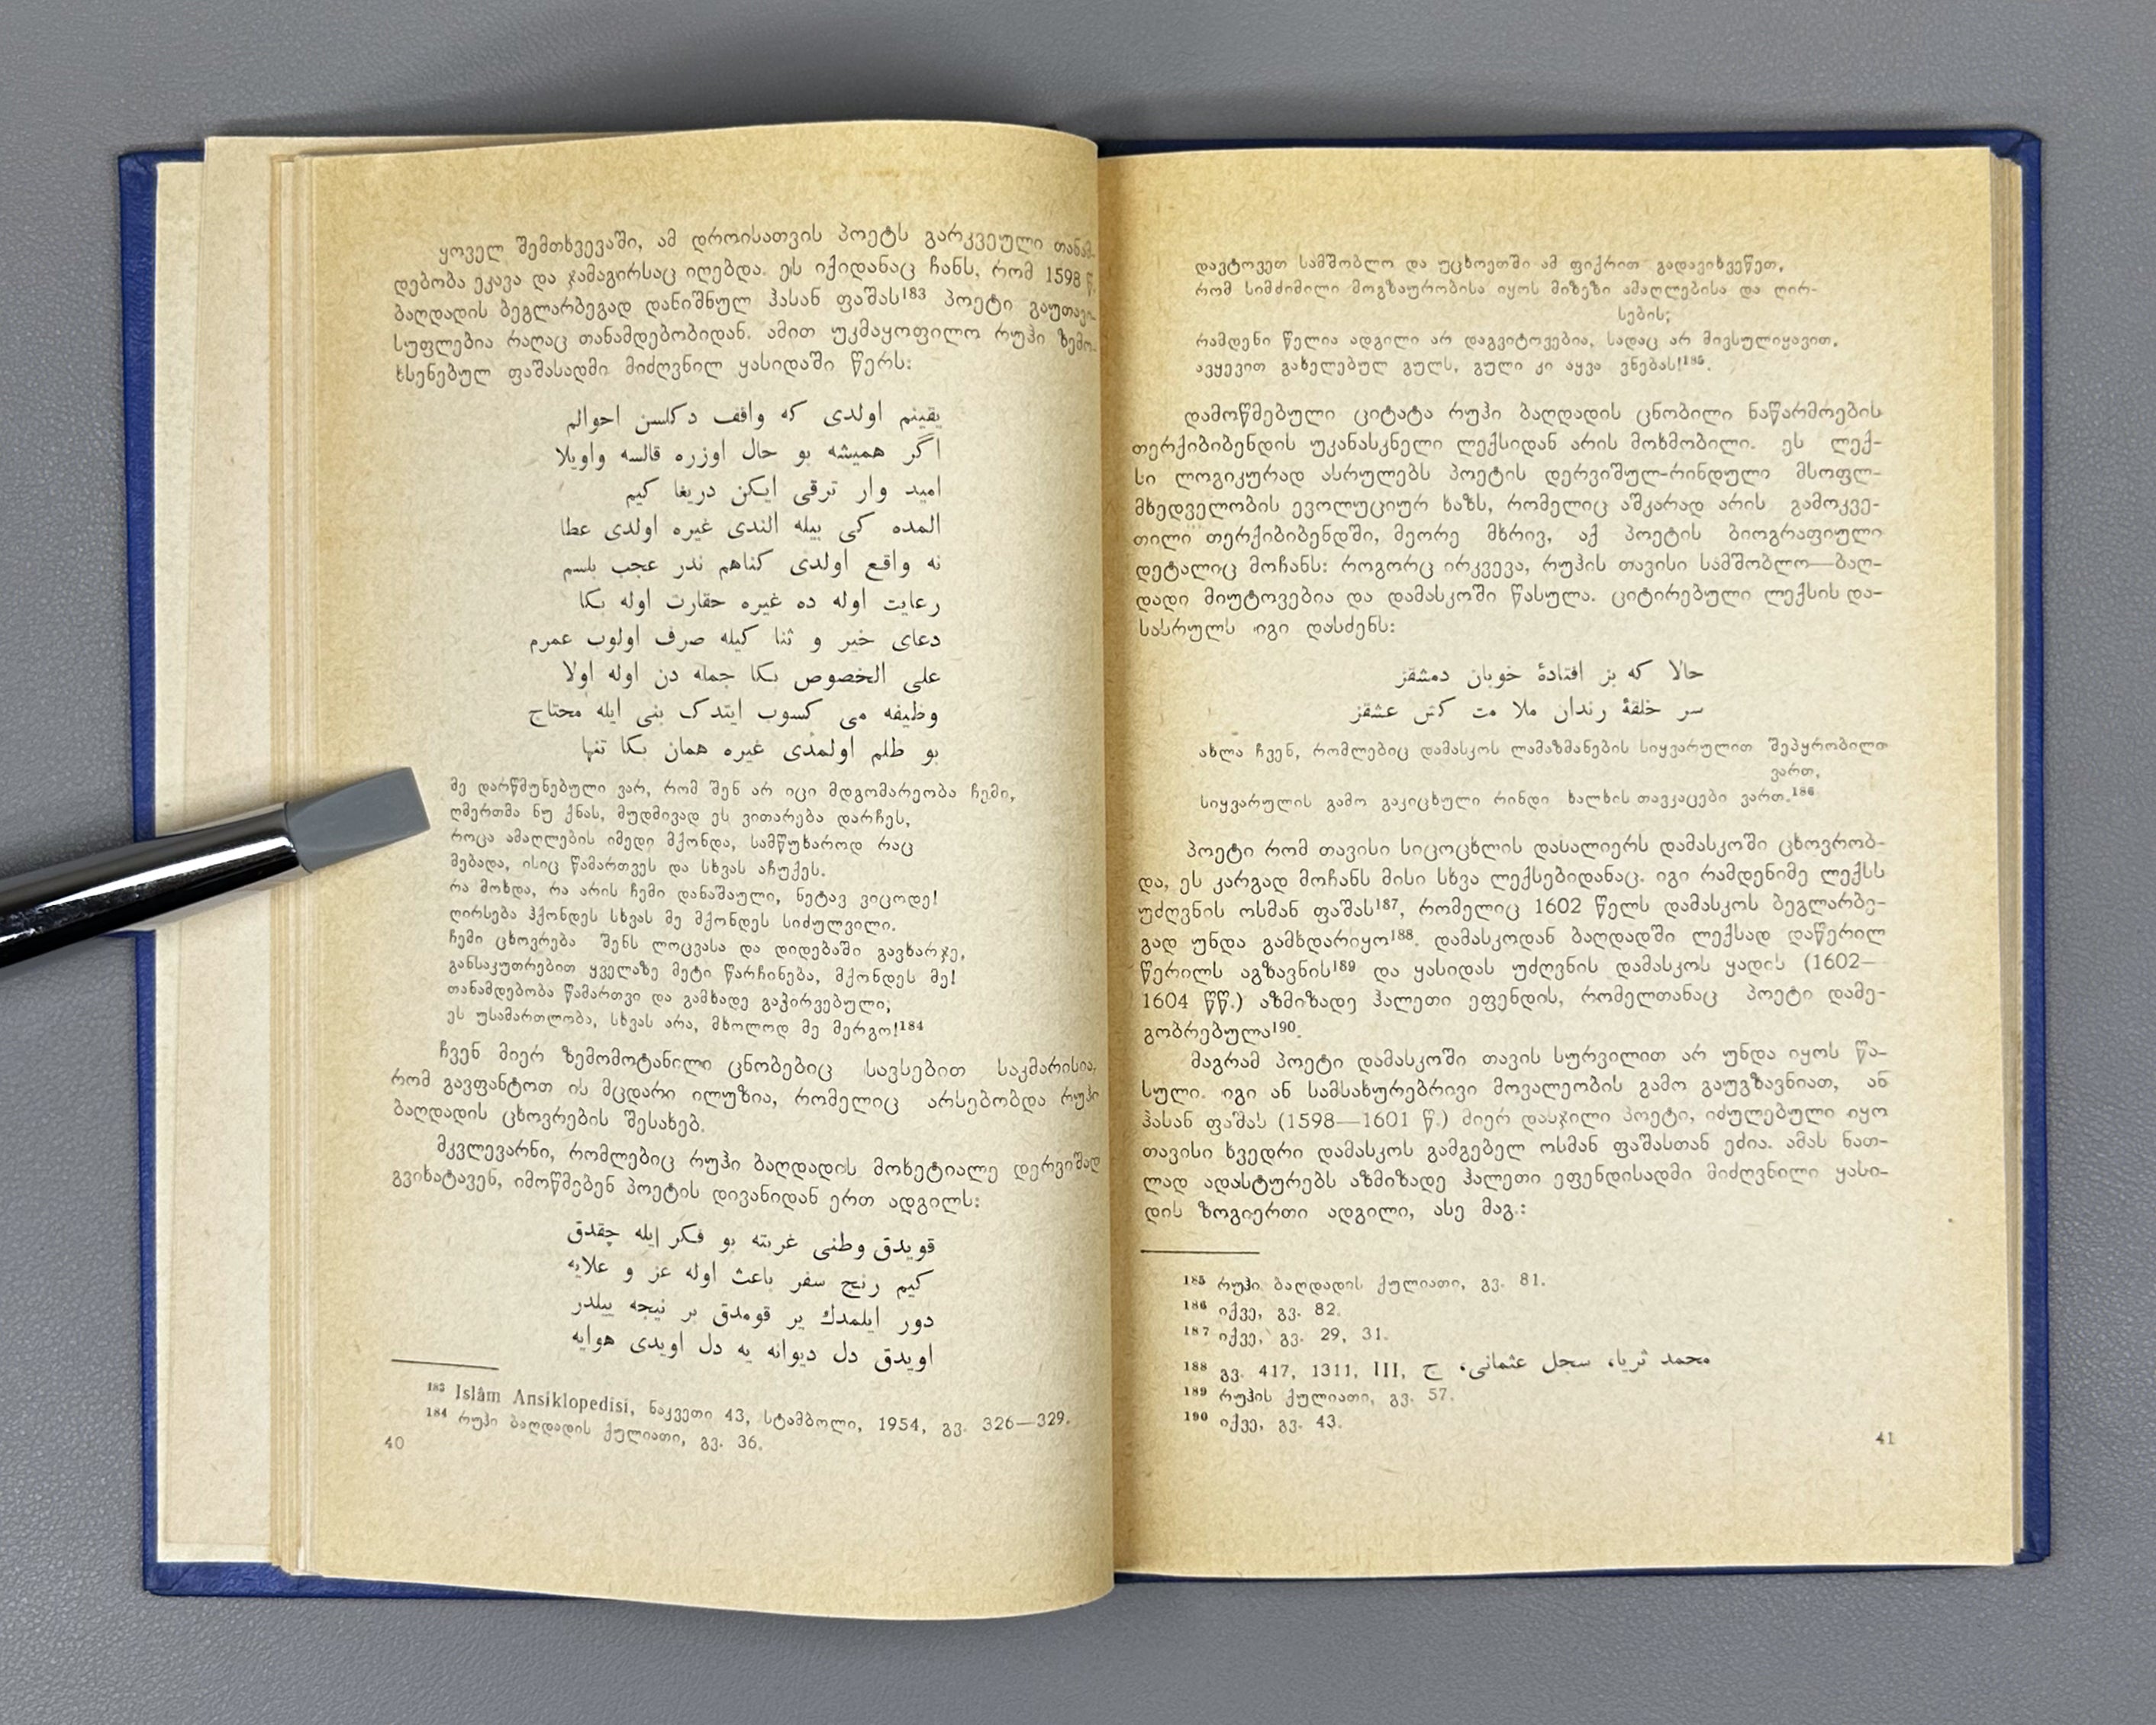 ყოველ შემთხვევაში, ამ დროისათვის პოეტს გარკვეული თანამ-
დებობა ეკავა და ჯამაგირსაც იღებდა. ეს იქიდანაც ჩანს, რომ 1598 წ.
ბაღდადის ბეგლარბეგად დანიშნულ ჰასან ფაშას¹⁸³ პოეტი გაუთავი-
სუფლებია რაღაც თანამდებობიდან. ამით უკმაყოფილო რუჰი ზემო-
ხსენებულ ფაშასადმი მიძღვნილ ყასიდაში წერს:
يقينم اولدى كه واقف دكلسن احوالم
اگر هميشه بو حال اوزره قالسه واويلا
اميد وار ترقى ايكن دريغا كيم
المده كى بيله الندى غيره اولدى عطا
نه واقع اولدى كناهم ندر عجب بلسم
رعايت اوله ده غيره حقارت اوله بكا
دعاى خير و ثنا كيله صرف اولوب عمرم
على الخصوص بكا جمله دن اوله اولا
وظيفه مى كسوب ايتدك بنى ايله محتاج
بو ظلم اولمدى غيره همان بكا تنها
მე დარწმუნებული ვარ, რომ შენ არ იცი მდგომარეობა ჩემი,
ღმერთმა ნუ ქნას, მუდმივად ეს ვითარება დარჩეს,
როცა ამაღლების იმედი მქონდა, სამწუხაროდ რაც
მებადა, ისიც წამართვეს და სხვას აჩუქეს.
რა მოხდა, რა არის ჩემი დანაშაული, ნეტავ ვიცოდე!
ღირსება ჰქონდეს სხვას მე მქონდეს სიძულვილი.
ჩემი ცხოვრება შენს ლოცვასა და დიდებაში გავხარჯე,
განსაკუთრებით ყველაზე მეტი წარჩინება, მქონდეს მე!
თანამდებობა წამართვი და გამხადე გაჭირვებული;
ეს უსამართლობა, სხვას არა, მხოლოდ მე მერგო!¹⁸⁴
ჩვენ მიერ ზემომოტანილი ცნობებიც სავსებით საკმარისია,
რომ გავფანტოთ ის მცდარი ილუზია, რომელიც არსებობდა რუჰი
ბაღდადის ცხოვრების შესახებ.
მკვლევარნი, რომლებიც რუჰი ბაღდადის მოხეტიალე დერვიშად
გვიხატავენ, იმოწმებენ პოეტის დივანიდან ერთ ადგილს:
قويدق وطنى غربته بو فكر ايله چقدق
كيم رنج سفر باعث اوله عز و علايه
دور ايلمدك ير قومدق بر نيجه ييلدر
اويدق دل ديوانه يه دل اويدى هوايه
¹⁸³ Islâm Ansiklopedisi, ნაკვეთი 43, სტამბოლი, 1954, გვ. 326—329.
¹⁸⁴ რუჰი ბაღდადის ქულიათი, გვ. 36.
40
დავტოვეთ სამშობლო და უცხოეთში ამ ფიქრით გადავიხვეწეთ,
რომ სიმძიმილი მოგზაურობისა იყოს მიზეზი ამაღლებისა და ღირ-
სების;
რამდენი წელია ადგილი არ დაგვიტოვებია, სადაც არ მივსულიყავით,
ავყევით გახელებულ გულს, გული კი აყვა ვნებას!¹⁸⁵.
დამოწმებული ციტატა რუჰი ბაღდადის ცნობილი ნაწარმოების
თერქიბიბენდის უკანასკნელი ლექსიდან არის მოხმობილი. ეს ლექ-
სი ლოგიკურად ასრულებს პოეტის დერვიშულ-რინდული მსოფლ-
მხედველობის ევოლუციურ ხაზს, რომელიც აშკარად არის გამოკვე-
თილი თერქიბიბენდში, მეორე მხრივ, აქ პოეტის ბიოგრაფიული
დეტალიც მოჩანს: როგორც ირკვევა, რუჰის თავისი სამშობლო—ბაღ-
დადი მიუტოვებია და დამასკოში წასულა. ციტირებული ლექსის და-
სასრულს იგი დასძენს:
حالا كه بز افتادهٔ خوبان دمشقز
سر خلقهٔ رندان ملا مت كش عشقز
ახლა ჩვენ, რომლებიც დამასკოს ლამაზმანების სიყვარულით შეპყრობილი
ვართ,
სიყვარულის გამო გაკიცხული რინდი ხალხის თავკაცები ვართ.¹⁸⁶
პოეტი რომ თავისი სიცოცხლის დასალიერს დამასკოში ცხოვრობ-
და, ეს კარგად მოჩანს მისი სხვა ლექსებიდანაც. იგი რამდენიმე ლექსს
უძღვნის ოსმან ფაშას¹⁸⁷, რომელიც 1602 წელს დამასკოს ბეგლარბე-
გად უნდა გამხდარიყო¹⁸⁸. დამასკოდან ბაღდადში ლექსად დაწერილ
წერილს აგზავნის¹⁸⁹ და ყასიდას უძღვნის დამასკოს ყადის (1602—
1604 წწ.) აზმიზადე ჰალეთი ეფენდის, რომელთანაც პოეტი დამე-
გობრებულა¹⁹⁰.
მაგრამ პოეტი დამასკოში თავის სურვილით არ უნდა იყოს წა-
სული. იგი ან სამსახურებრივი მოვალეობის გამო გაუგზავნიათ, ან
ჰასან ფაშას (1598—1601 წ.) მიერ დასჯილი პოეტი, იძულებული იყო
თავისი ხვედრი დამასკოს გამგებელ ოსმან ფაშასთან ეძია. ამას ნათ-
ლად ადასტურებს აზმიზადე ჰალეთი ეფენდისადმი მიძღვნილი ყასი-
დის ზოგიერთი ადგილი, ასე მაგ.:
¹⁸⁵ რუჰი ბაღდადის ქულიათი, გვ. 81.
¹⁸⁶ იქვე, გვ. 82.
¹⁸⁷ იქვე, გვ. 29, 31.
¹⁸⁸ გვ. 417, 1311, III, محمد ثريا، سجل عثمانى، ج
¹⁸⁹ რუჰის ქულიათი, გვ. 57.
¹⁹⁰ იქვე, გვ. 43.
41